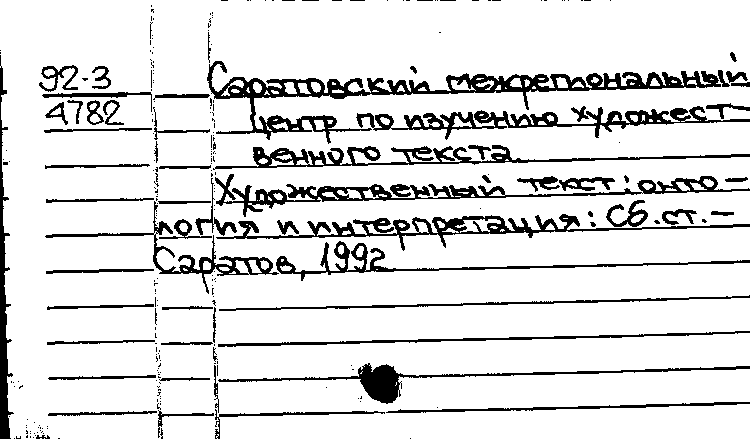 92-3 Саратовский межрегиональный
4782 центр по изучению художест-
венного текста.
Художественный текст: онто-
логия и интерпретация: Сб.ст.-
Саратов, 1992